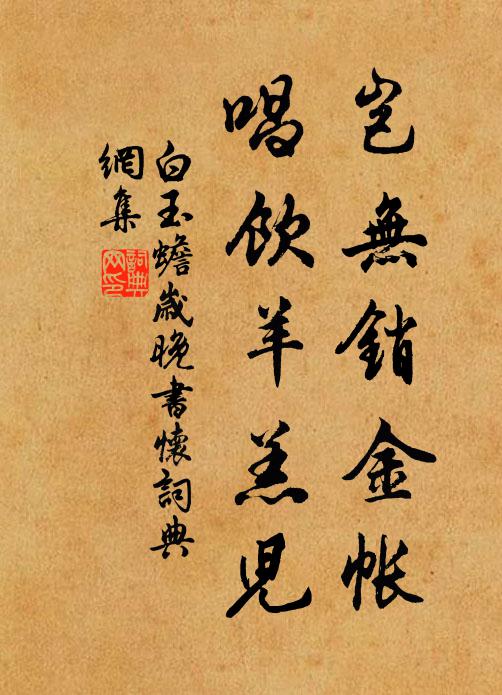 豈無銷金帳
唱飲羊羔兒
白玉蟾歲晚書懷詞典
網集
詞典网印